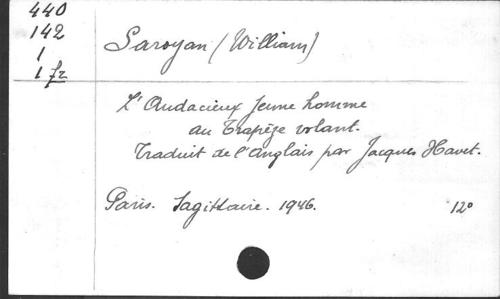 440
142
1
1 fr
Saroyan (William)
L'Audacieux jeune homme
au Trapèze volant.
Traduit de l'Anglais par Jacques Havet.
Paris. Sagittaire. 1946. 12°